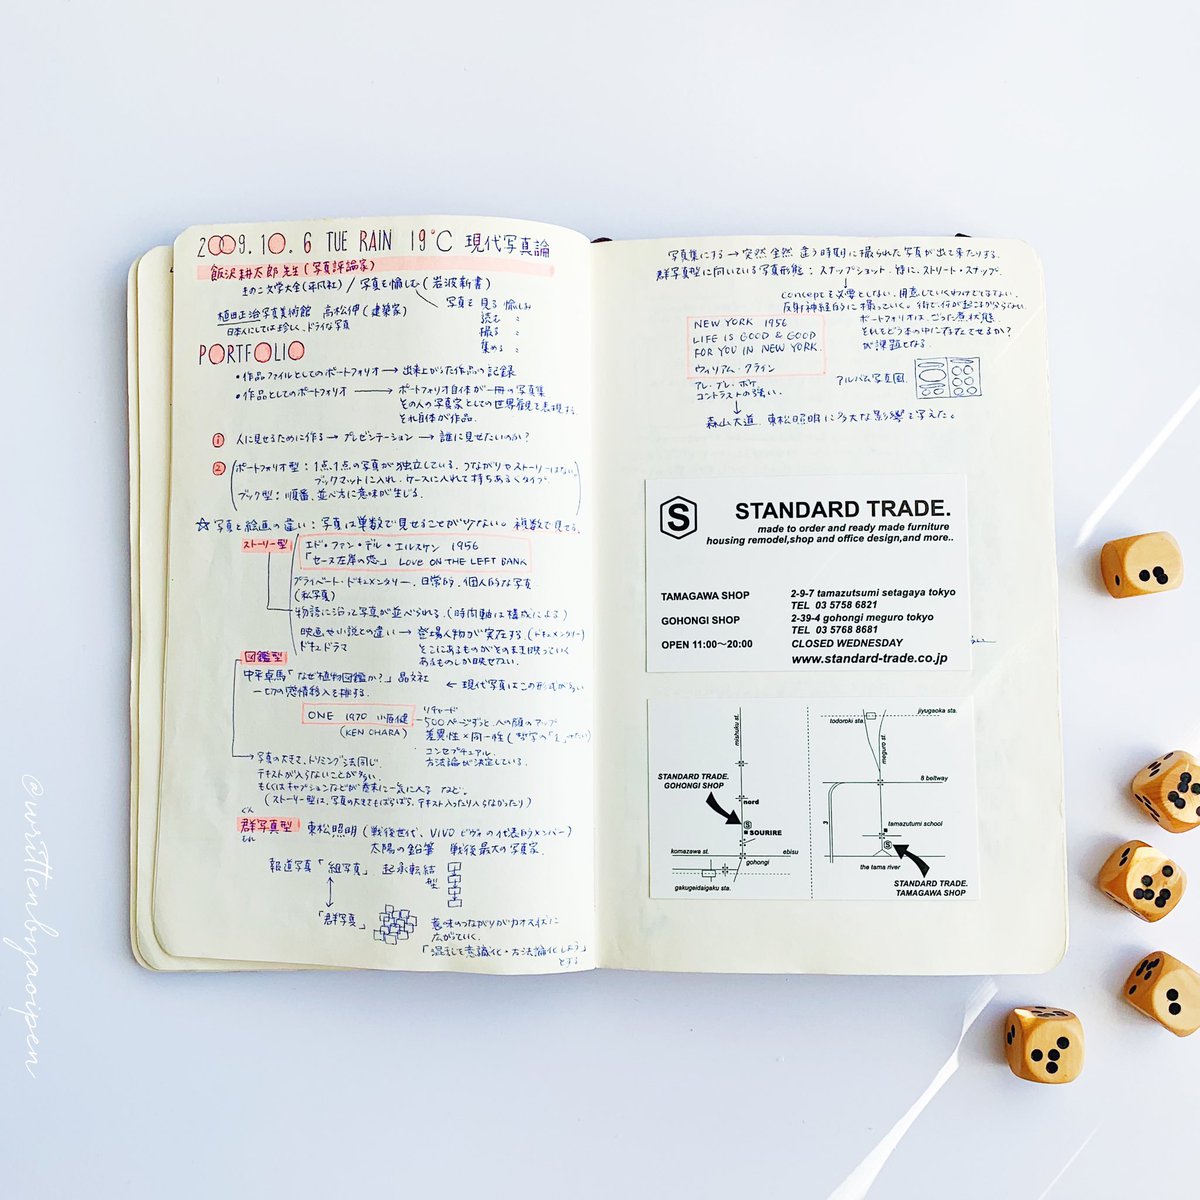 2009.10.6 TUE RAIN 19°C 現代写真論
飯沢耕太郎先生(写真評論家)
きのこ文学大全(平凡社)/写真を愉しむ(岩波新書)
植田正治写真美術館 高松伸(建築家)
日本人にしては珍しくドライな写真
写真を見る愉しみ
読む 〃
撮る 〃
集める 〃
PORTFOLIO
・作品ファイルとしてのポートフォリオ→出来上がった作品の記録
・作品としてのポートフォリオ→ポートフォリオ自体が一冊の写真集
その人の写真家としての世界観を表現する
それ自体が作品
① 人に見せるために作る→プレゼンテーション→誰に見せたいのか?
② ポートフォリオ型:1点1点の写真が独立している.つながりやストーリーはない
ブックマットに入れ.ケースに入れて持ちあるくタイプ.
ブック型:順番、並べ方に意味が生じる.
☆写真と絵画の違い:写真は単数で見せることが少ない。複数で見せる.
ストーリー型
エド・ファン・デル・エルスケン 1956
「セーヌ左岸の恋」 LOVE ON THE LEFT BANK
プライベート・ドキュメンタリー.日常的.個人的な写真
(私写真)
物語に沿って写真が並べられる.(時間軸は構成による)
映画や小説との違い→登場人物が実在する.(ドキュメンタリー)
ドキュドラマ
そこにあるものがそのまま映っていく
あるものしか映せない.
図鑑型
中平卓馬「なぜ植物図鑑か?」晶文社
一切の感情移入を排する.
←現代写真はこの形式が多い
ONE 1970 小原健
(KEN OHARA)
リチャード
500ページずっと.人の顔のアップ
差異性×同一性
コンセプチュアル.
方法論が決定している.
→写真の大きさ、トリミング法同じ.
テキストが入らないことが多い.
もしくはキャプションなどが巻末に一気に入る など.
(ストーリー型は、写真の大きさもばらばら、テキスト入ったり入らなかったり)
ぐん
群写真型
むれ
東松照明(戦後世代、VIVO の代表的メンバー)
太陽の鉛筆 戦後最大の写真家.
報道写真「組写真」 起承転結
型
「群写真」
意味のつながりがカオス状に
広がっていく.
「混乱して意識化・方法論化しよう」
とする
写真集にする→突然全然違う時刻に撮られた写真が出て来たりする.
群写真型に向いている写真形態:スナップショット.特に、ストリート・スナップ.
conceptを必要としない.用意していくわけでもない.
反射神経的に撮っていく。街で何が起こるか分からない.
ポートフォリオは、ごった煮状態.
それをどう本の中に存在させるか?
が課題となる.
NEW YORK 1956
LIFE IS GOOD & GOOD
FOR YOU IN NEW YORK.
ウィリアム・クライン
アレ・ブレ・ボケ
コントラストの強い.
アルバム写真風.
森山大道、東松照明に多大な影響を与えた。
S STANDARD TRADE.
made to order and ready made furniture
housing remodel,shop and office design,and more..
TAMAGAWA SHOP 2-9-7 tamazutsumi setagaya tokyo
TEL 03 5758 6821
GOHONGI SHOP 2-39-4 gohongi meguro tokyo
TEL 03 5768 8681
OPEN 11:00〜20:00 CLOSED WEDNESDAY
www.standard-trade.co.jp
mishuku st.
STANDARD TRADE.
GOHONGI SHOP
nord
S
SOURIRE
komazawa st.
ebisu
gohongi
gakugeidaigaku sta.
jiyugaoka sta.
todoroki sta.
meguro st.
8 beltway
3
tamazutumi school
S
the tama river
STANDARD TRADE.
TAMAGAWA SHOP
@writtenbyaoipen